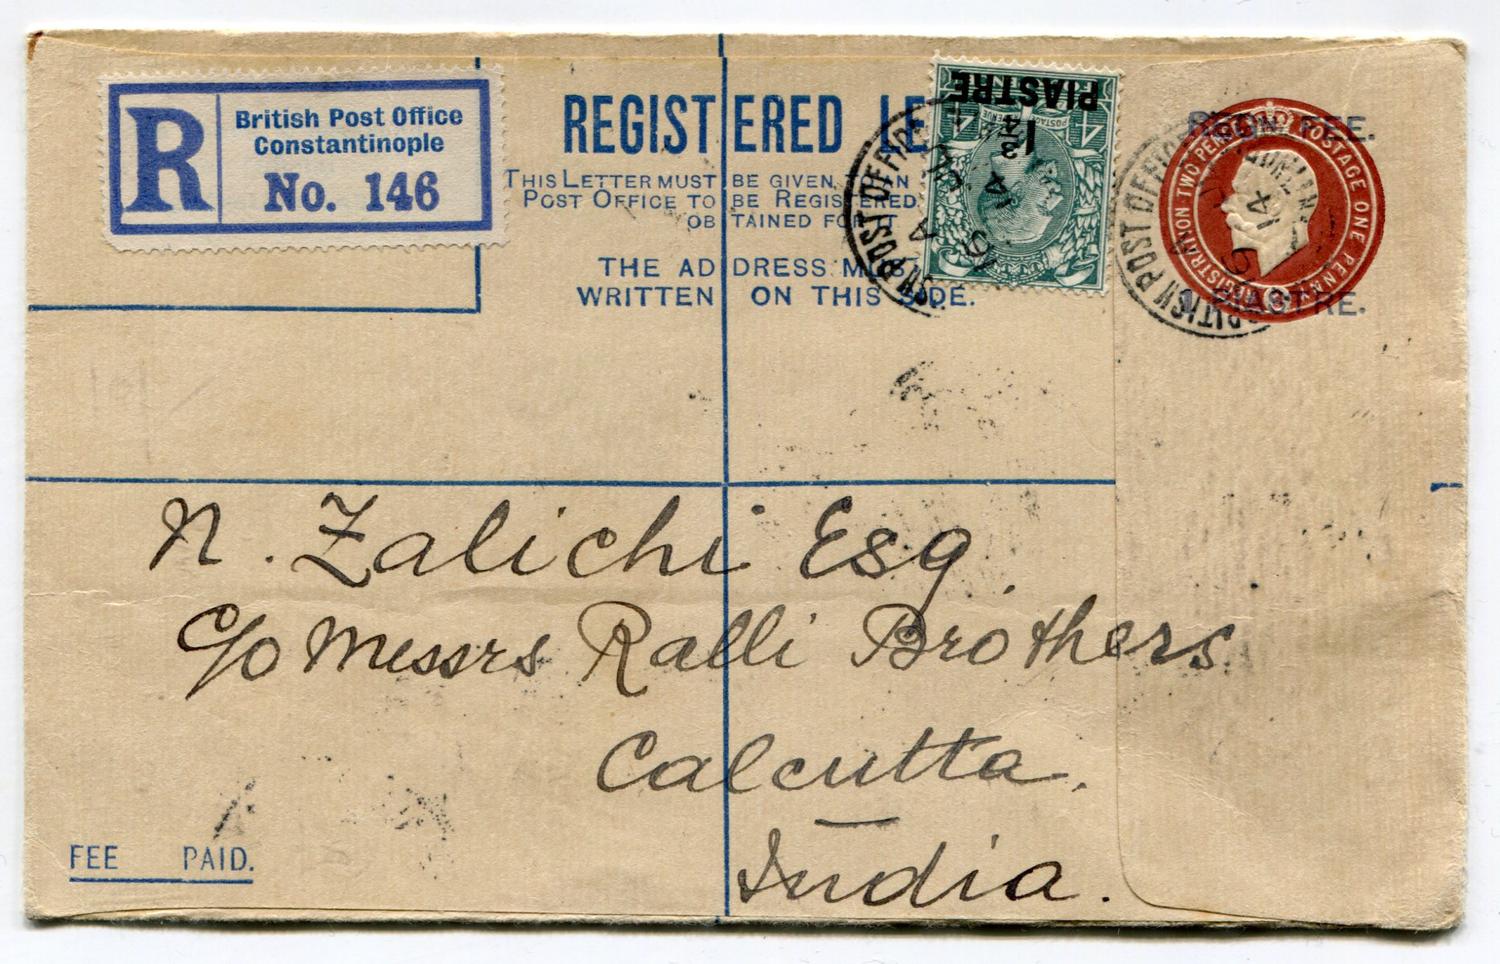 R
British Post Office
Constantinople
No. 146
REGISTERED LE
THIS LETTER MUST BE GIVEN, IN
POST OFFICE TO BE REGISTERED,
OBTAINED FOR IT
THE ADDRESS MUS
WRITTEN ON THIS SIDE.
1¾ PIASTRE
POSTAGE
BRITISH POST OFFICE
REGISTRATION TWO PENCE
POSTAGE ONE PENNY
FEE.
1 PIASTRE.
N. Zalichi Esq.
C/o Messrs Ralli Brothers
Calcutta.
India.
FEE PAID.